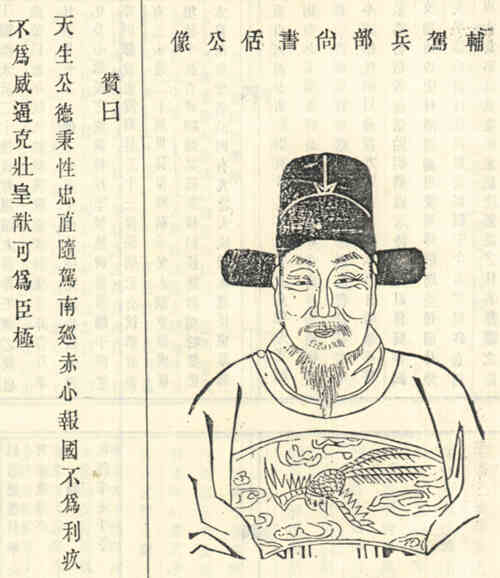 輔駕兵部尚書佸公像
贊曰
天生公德秉性忠直隨駕南廵赤心報國不爲利疚
不爲威逼克壯皇猷可爲臣極